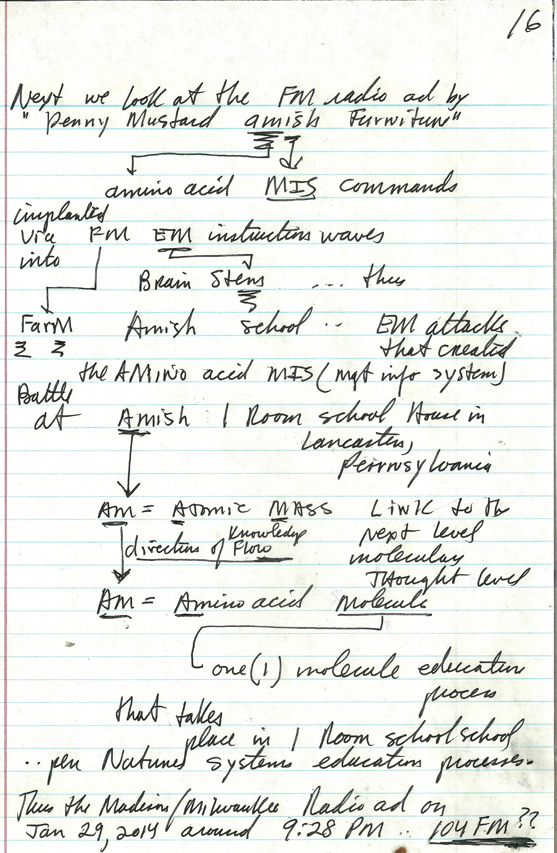 16
Next we look at the FM radio ad by
"Penny Mustard amish Furniture"
amino acid MIS commands
implanted
via FM EM instruction waves
into
Brain Stems ... thus
FarM Amish school .. EM attacks
that created
the AMino acid MIS (mgt info system)
Battle
at Amish 1 Room school House in
Lancaster,
Pennsylvania
Am = Atomic MAss Link to the
Next level
direction of Knowledge Flow
molecular
Thought level
Am = Amino acid Molecule
one (1) molecule education
process
that takes
place in 1 Room school school
.. per Natures systems education processes.
Thus the Madison/Milwaukee Radio ad on
Jan 29, 2014 around 9:28 PM .. 104 FM ??